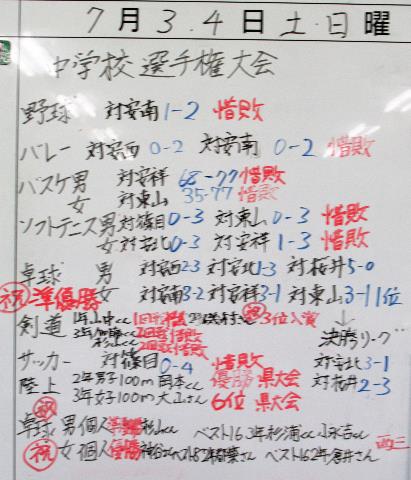 7月3.4日土・日曜
中学校選手権大会
野球 対安南1-2 惜敗
バレー 対安西0-2 対安南0-2 惜敗
バスケ男 対安祥68-77惜敗
女 対東山35-77惜敗
ソフトテニス男対篠目0-3 対東山0-3 惜敗
女対安北0-3 対安祥1-3 惜敗
卓球 男 対安西2-3 対安北1-3 対桜井5-0
祝準優勝 女 対安南3-2 対安祥3-1 対東山3-1 1位
決勝リーグ
対安北3-1
対桜井2-3
剣道 祝3位入賞
サッカー 対篠目0-4 惜敗
陸上 2年男子100m岡本くん 優勝 県大会
3年女子100m大山さん 6位 県大会
祝
卓球男個人準優勝杉山くん ベスト16 3年杉浦くん小永吉くん
祝 女個人優勝 ベスト16 2年倉井さん
西三